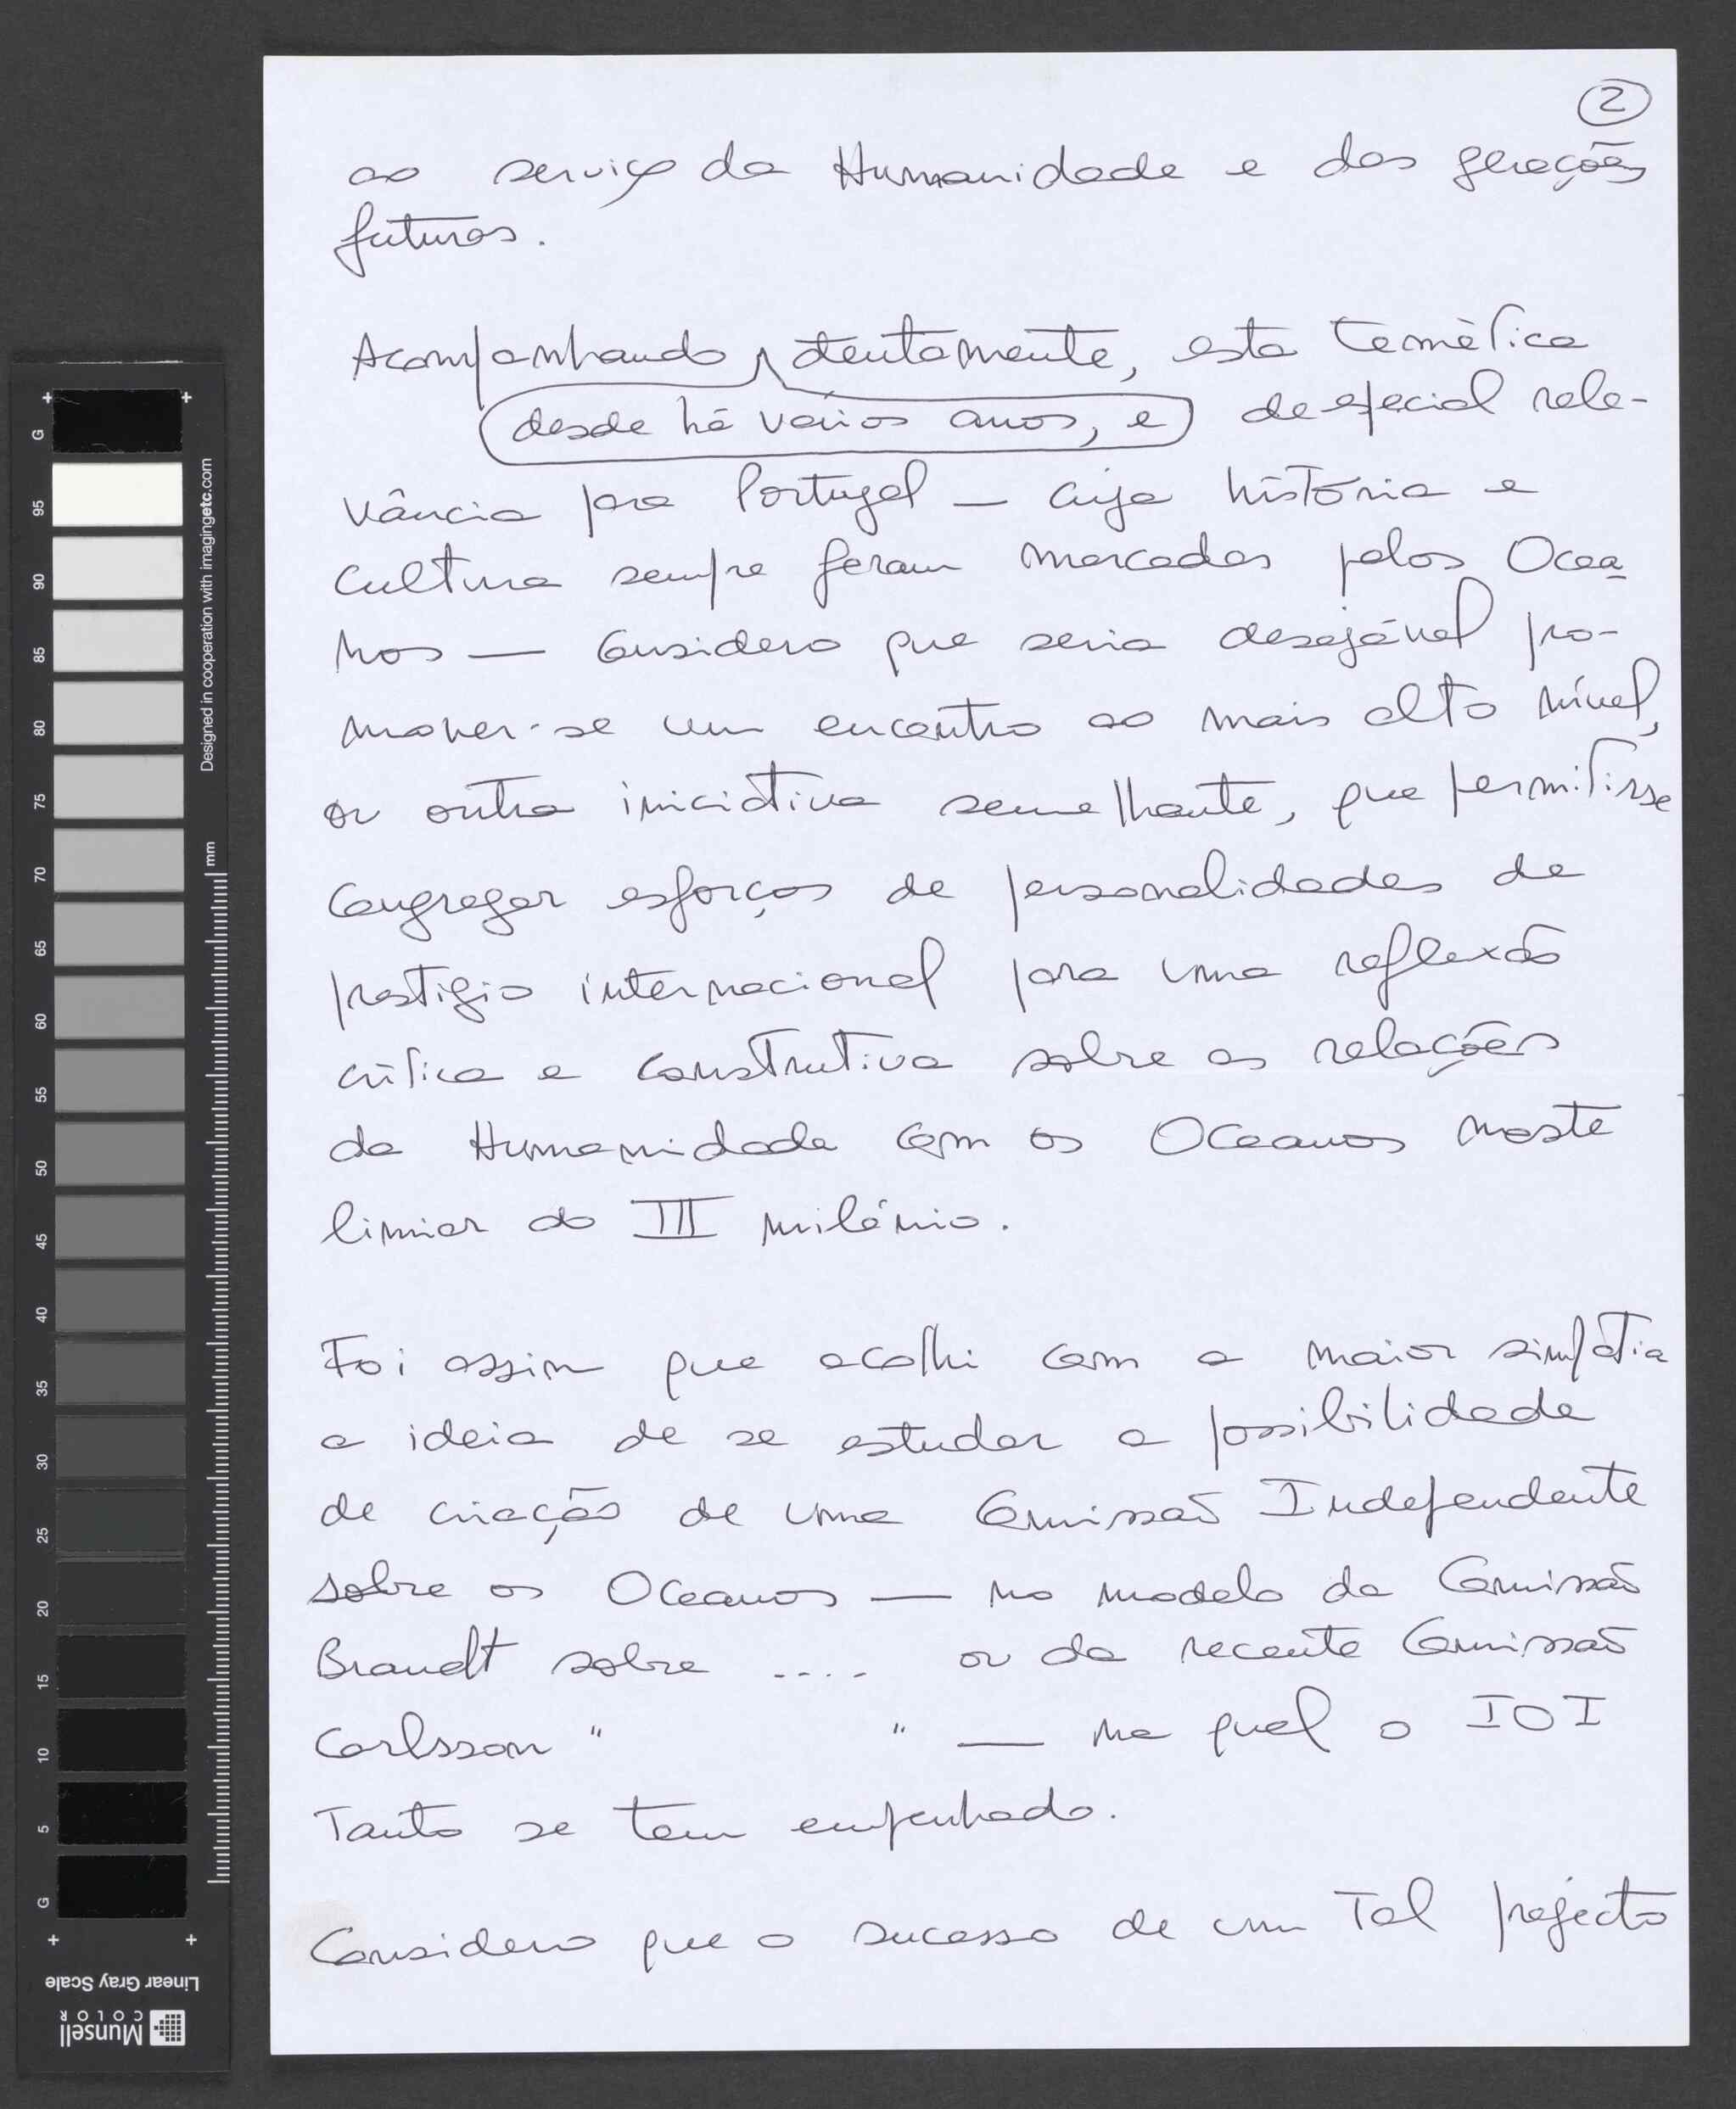 2
ao serviço da Humanidade e das gerações
futuras.
Acompanhando atentamente, esta temática
desde há vários anos, e de especial rele-
vância para Portugal — cuja história e
cultura sempre foram marcadas pelos Ocea
nos — considero que seria desejável pro-
mover-se um encontro ao mais alto nível,
ou outra iniciativa semelhante, que permitisse
congregar esforços de personalidades de
prestígio internacional para uma reflexão
crítica e construtiva sobre as relações
da Humanidade com os Oceanos neste
limiar do III milénio.
Foi assim que acolhi com a maior simpatia
a ideia de se estudar a possibilidade
de criação de uma Comissão Independente
sobre os Oceanos — no modelo da Comissão
Brandt sobre .... ou da recente Comissão
Carlsson " " — na qual o IOI
tanto se tem empenhado.
Considero que o sucesso de um tal projecto
G
95
90
85
80
75
70
65
60
55
50
45
40
35
30
25
20
15
10
5
G
Designed in cooperation with imagingetc.com
mm
Linear Gray Scale
Munsell
COLOR